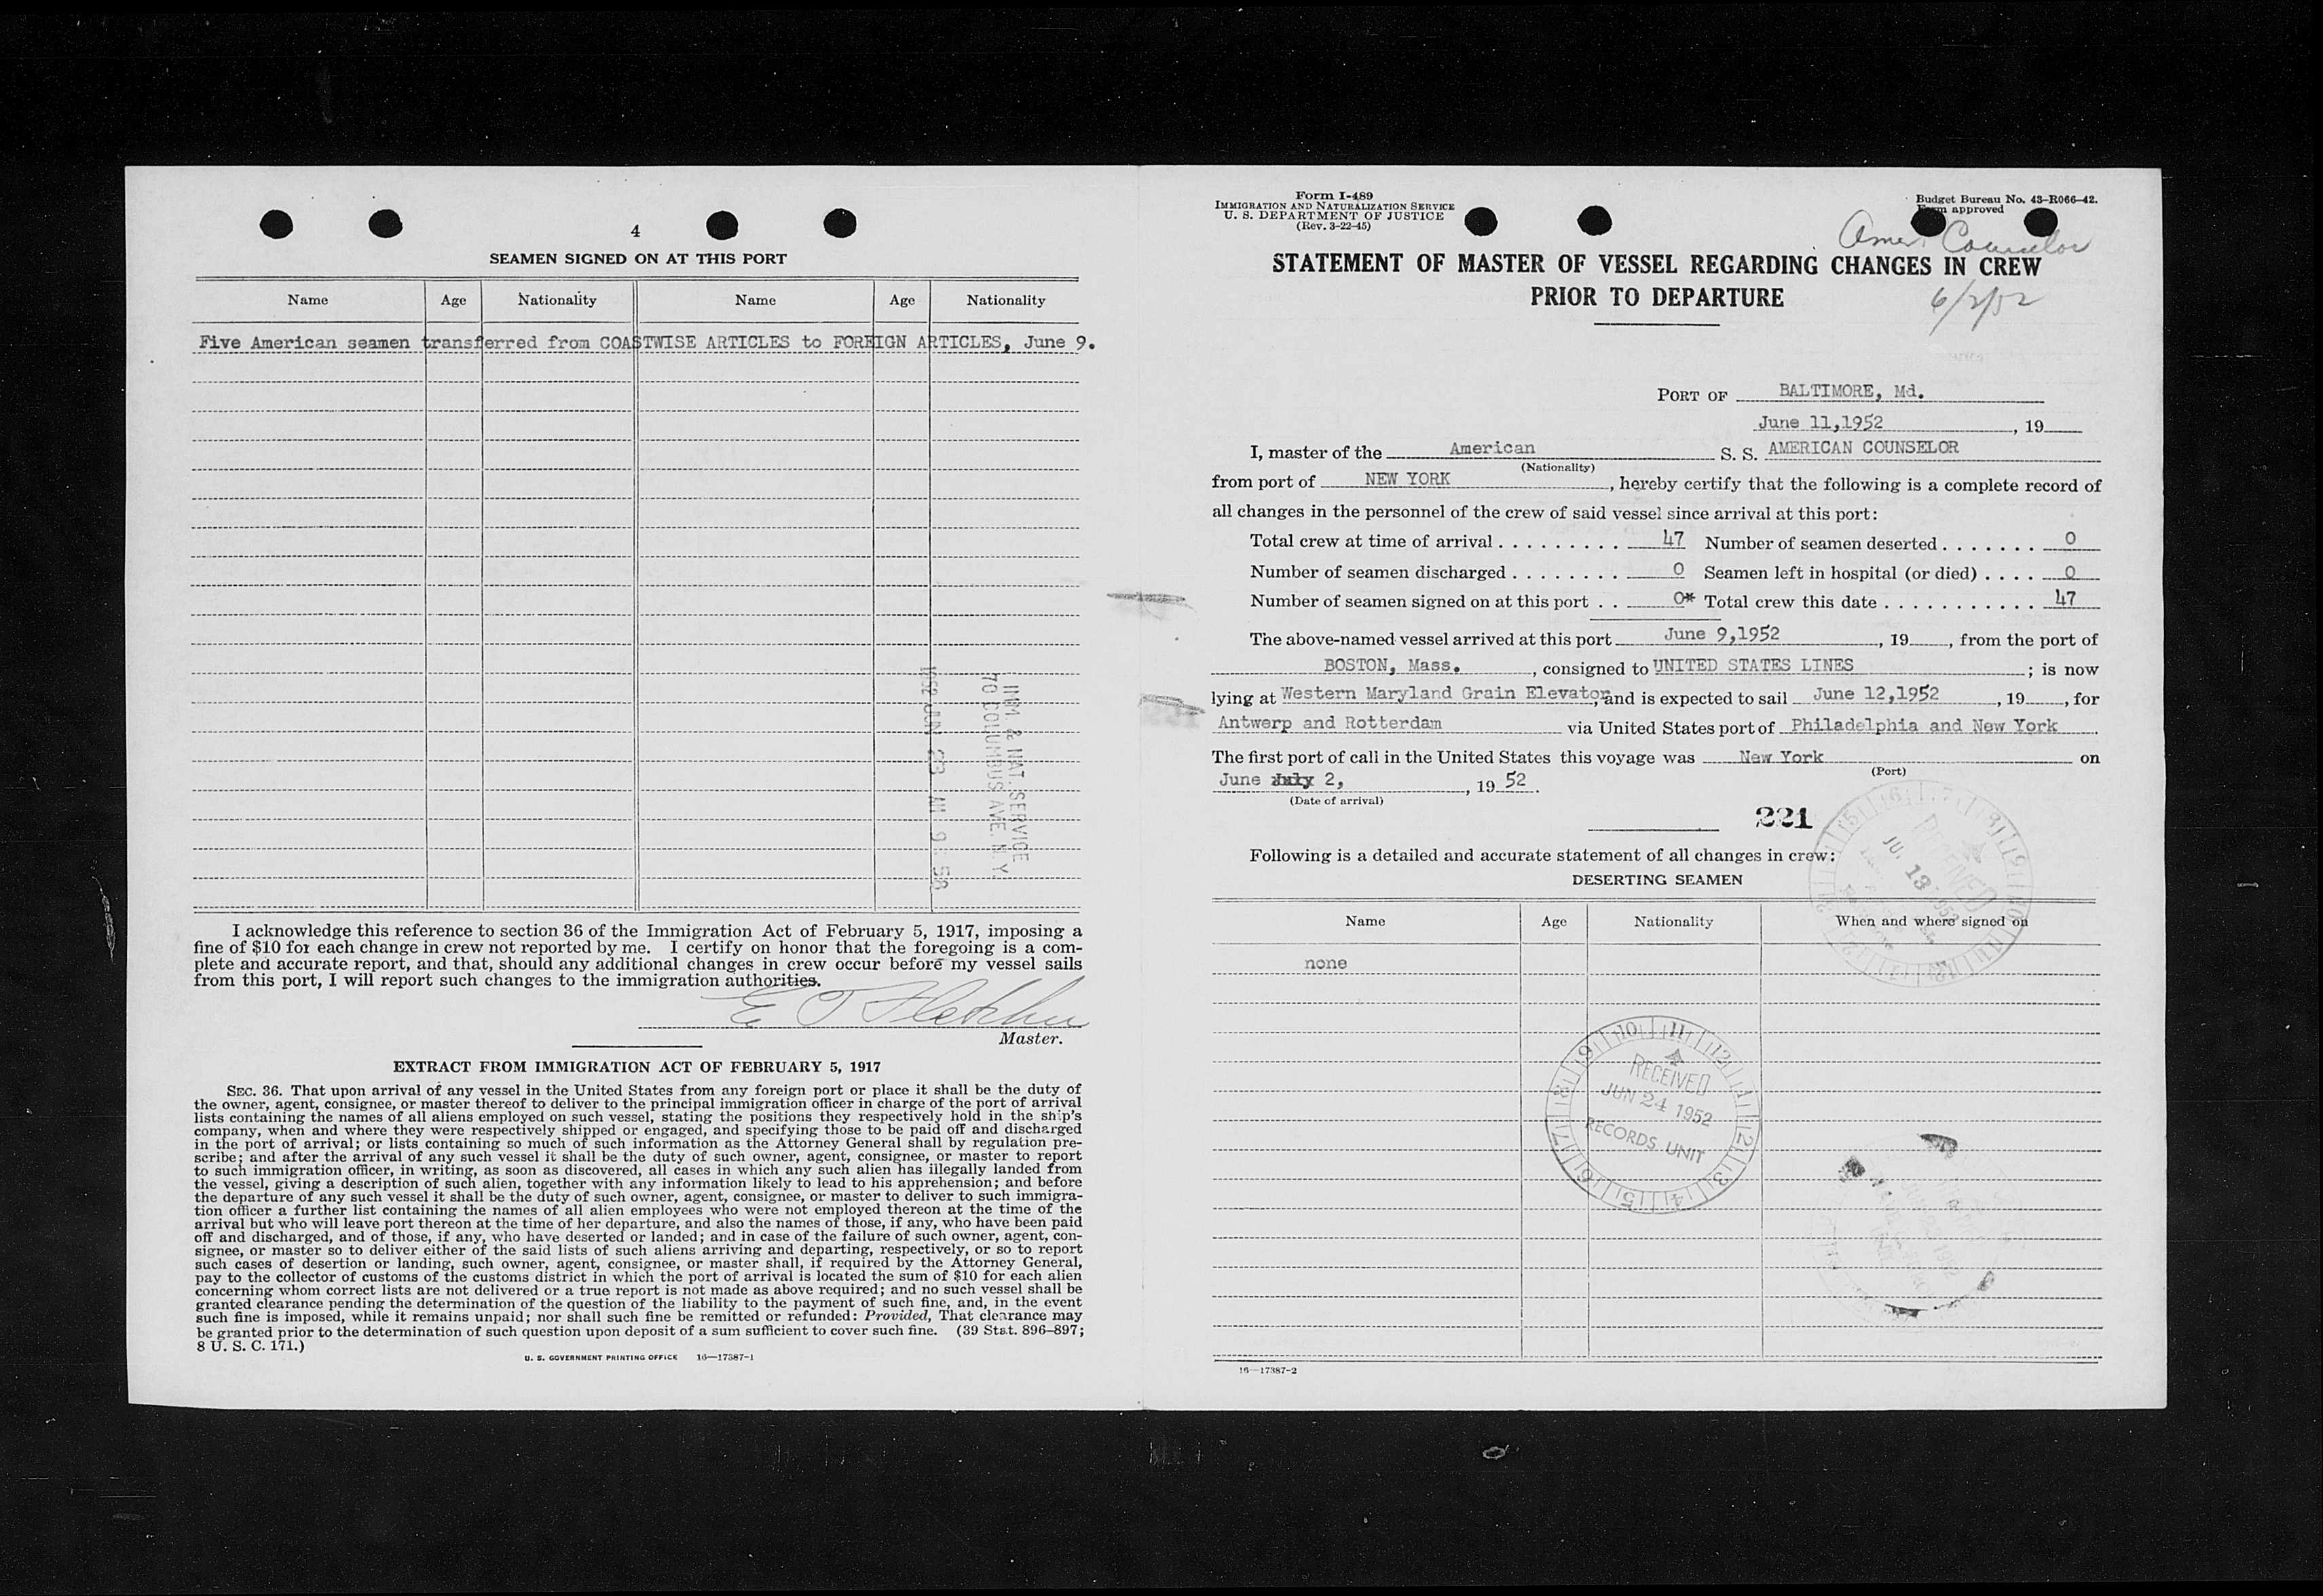 4
SEAMEN SIGNED ON AT THIS PORT
Name Age Nationality Name Age Nationality
Five American seamen transferred from COASTWISE ARTICLES to FOREIGN ARTICLES, June 9.
IMM. & NAT. SERVICE
70 COLUMBUS AVE. N.Y.
1952 JUN 23 AM 9 58
I acknowledge this reference to section 36 of the Immigration Act of February 5, 1917, imposing a
fine of $10 for each change in crew not reported by me. I certify on honor that the foregoing is a com-
plete and accurate report, and that, should any additional changes in crew occur before my vessel sails
from this port, I will report such changes to the immigration authorities.
E T Fletcher
Master.
EXTRACT FROM IMMIGRATION ACT OF FEBRUARY 5, 1917
SEC. 36. That upon arrival of any vessel in the United States from any foreign port or place it shall be the duty of
the owner, agent, consignee, or master thereof to deliver to the principal immigration officer in charge of the port of arrival
lists containing the names of all aliens employed on such vessel, stating the positions they respectively hold in the ship's
company, when and where they were respectively shipped or engaged, and specifying those to be paid off and discharged
in the port of arrival; or lists containing so much of such information as the Attorney General shall by regulation pre-
scribe; and after the arrival of any such vessel it shall be the duty of such owner, agent, consignee, or master to report
to such immigration officer, in writing, as soon as discovered, all cases in which any such alien has illegally landed from
the vessel, giving a description of such alien, together with any information likely to lead to his apprehension; and before
the departure of any such vessel it shall be the duty of such owner, agent, consignee, or master to deliver to such immigra-
tion officer a further list containing the names of all alien employees who were not employed thereon at the time of the
arrival but who will leave port thereon at the time of her departure, and also the names of those, if any, who have been paid
off and discharged, and of those, if any, who have deserted or landed; and in case of the failure of such owner, agent, con-
signee, or master so to deliver either of the said lists of such aliens arriving and departing, respectively, or so to report
such cases of desertion or landing, such owner, agent, consignee, or master shall, if required by the Attorney General,
pay to the collector of customs of the customs district in which the port of arrival is located the sum of $10 for each alien
concerning whom correct lists are not delivered or a true report is not made as above required; and no such vessel shall be
granted clearance pending the determination of the question of the liability to the payment of such fine, and, in the event
such fine is imposed, while it remains unpaid; nor shall such fine be remitted or refunded: Provided, That clearance may
be granted prior to the determination of such question upon deposit of a sum sufficient to cover such fine. (39 Stat. 896–897;
8 U. S. C. 171.)
U. S. GOVERNMENT PRINTING OFFICE 16—17387-1
Form I-489
IMMIGRATION AND NATURALIZATION SERVICE
U. S. DEPARTMENT OF JUSTICE
(Rev. 3-22-45)
Budget Bureau No. 43-R066-42.
Form approved
Amer. Counselor
STATEMENT OF MASTER OF VESSEL REGARDING CHANGES IN CREW
PRIOR TO DEPARTURE
6/2/52
PORT OF BALTIMORE, Md.
June 11,1952, 19
I, master of the American S. S. AMERICAN COUNSELOR
(Nationality)
from port of NEW YORK, hereby certify that the following is a complete record of
all changes in the personnel of the crew of said vessel since arrival at this port:
Total crew at time of arrival . . . . . . . . . 47 Number of seamen deserted . . . . . . . 0
Number of seamen discharged . . . . . . . . 0 Seamen left in hospital (or died) . . . . 0
Number of seamen signed on at this port . . 0* Total crew this date . . . . . . . . . . . 47
The above-named vessel arrived at this port June 9,1952, 19, from the port of
BOSTON, Mass., consigned to UNITED STATES LINES; is now
lying at Western Maryland Grain Elevator, and is expected to sail June 12,1952, 19, for
Antwerp and Rotterdam via United States port of Philadelphia and New York
The first port of call in the United States this voyage was New York on
(Port)
June July 2, 19 52.
(Date of arrival)
221
Following is a detailed and accurate statement of all changes in crew:
DESERTING SEAMEN
Name Age Nationality When and where signed on
none
RECEIVED
JUN 24 1952
RECORDS UNIT
16—17387-2